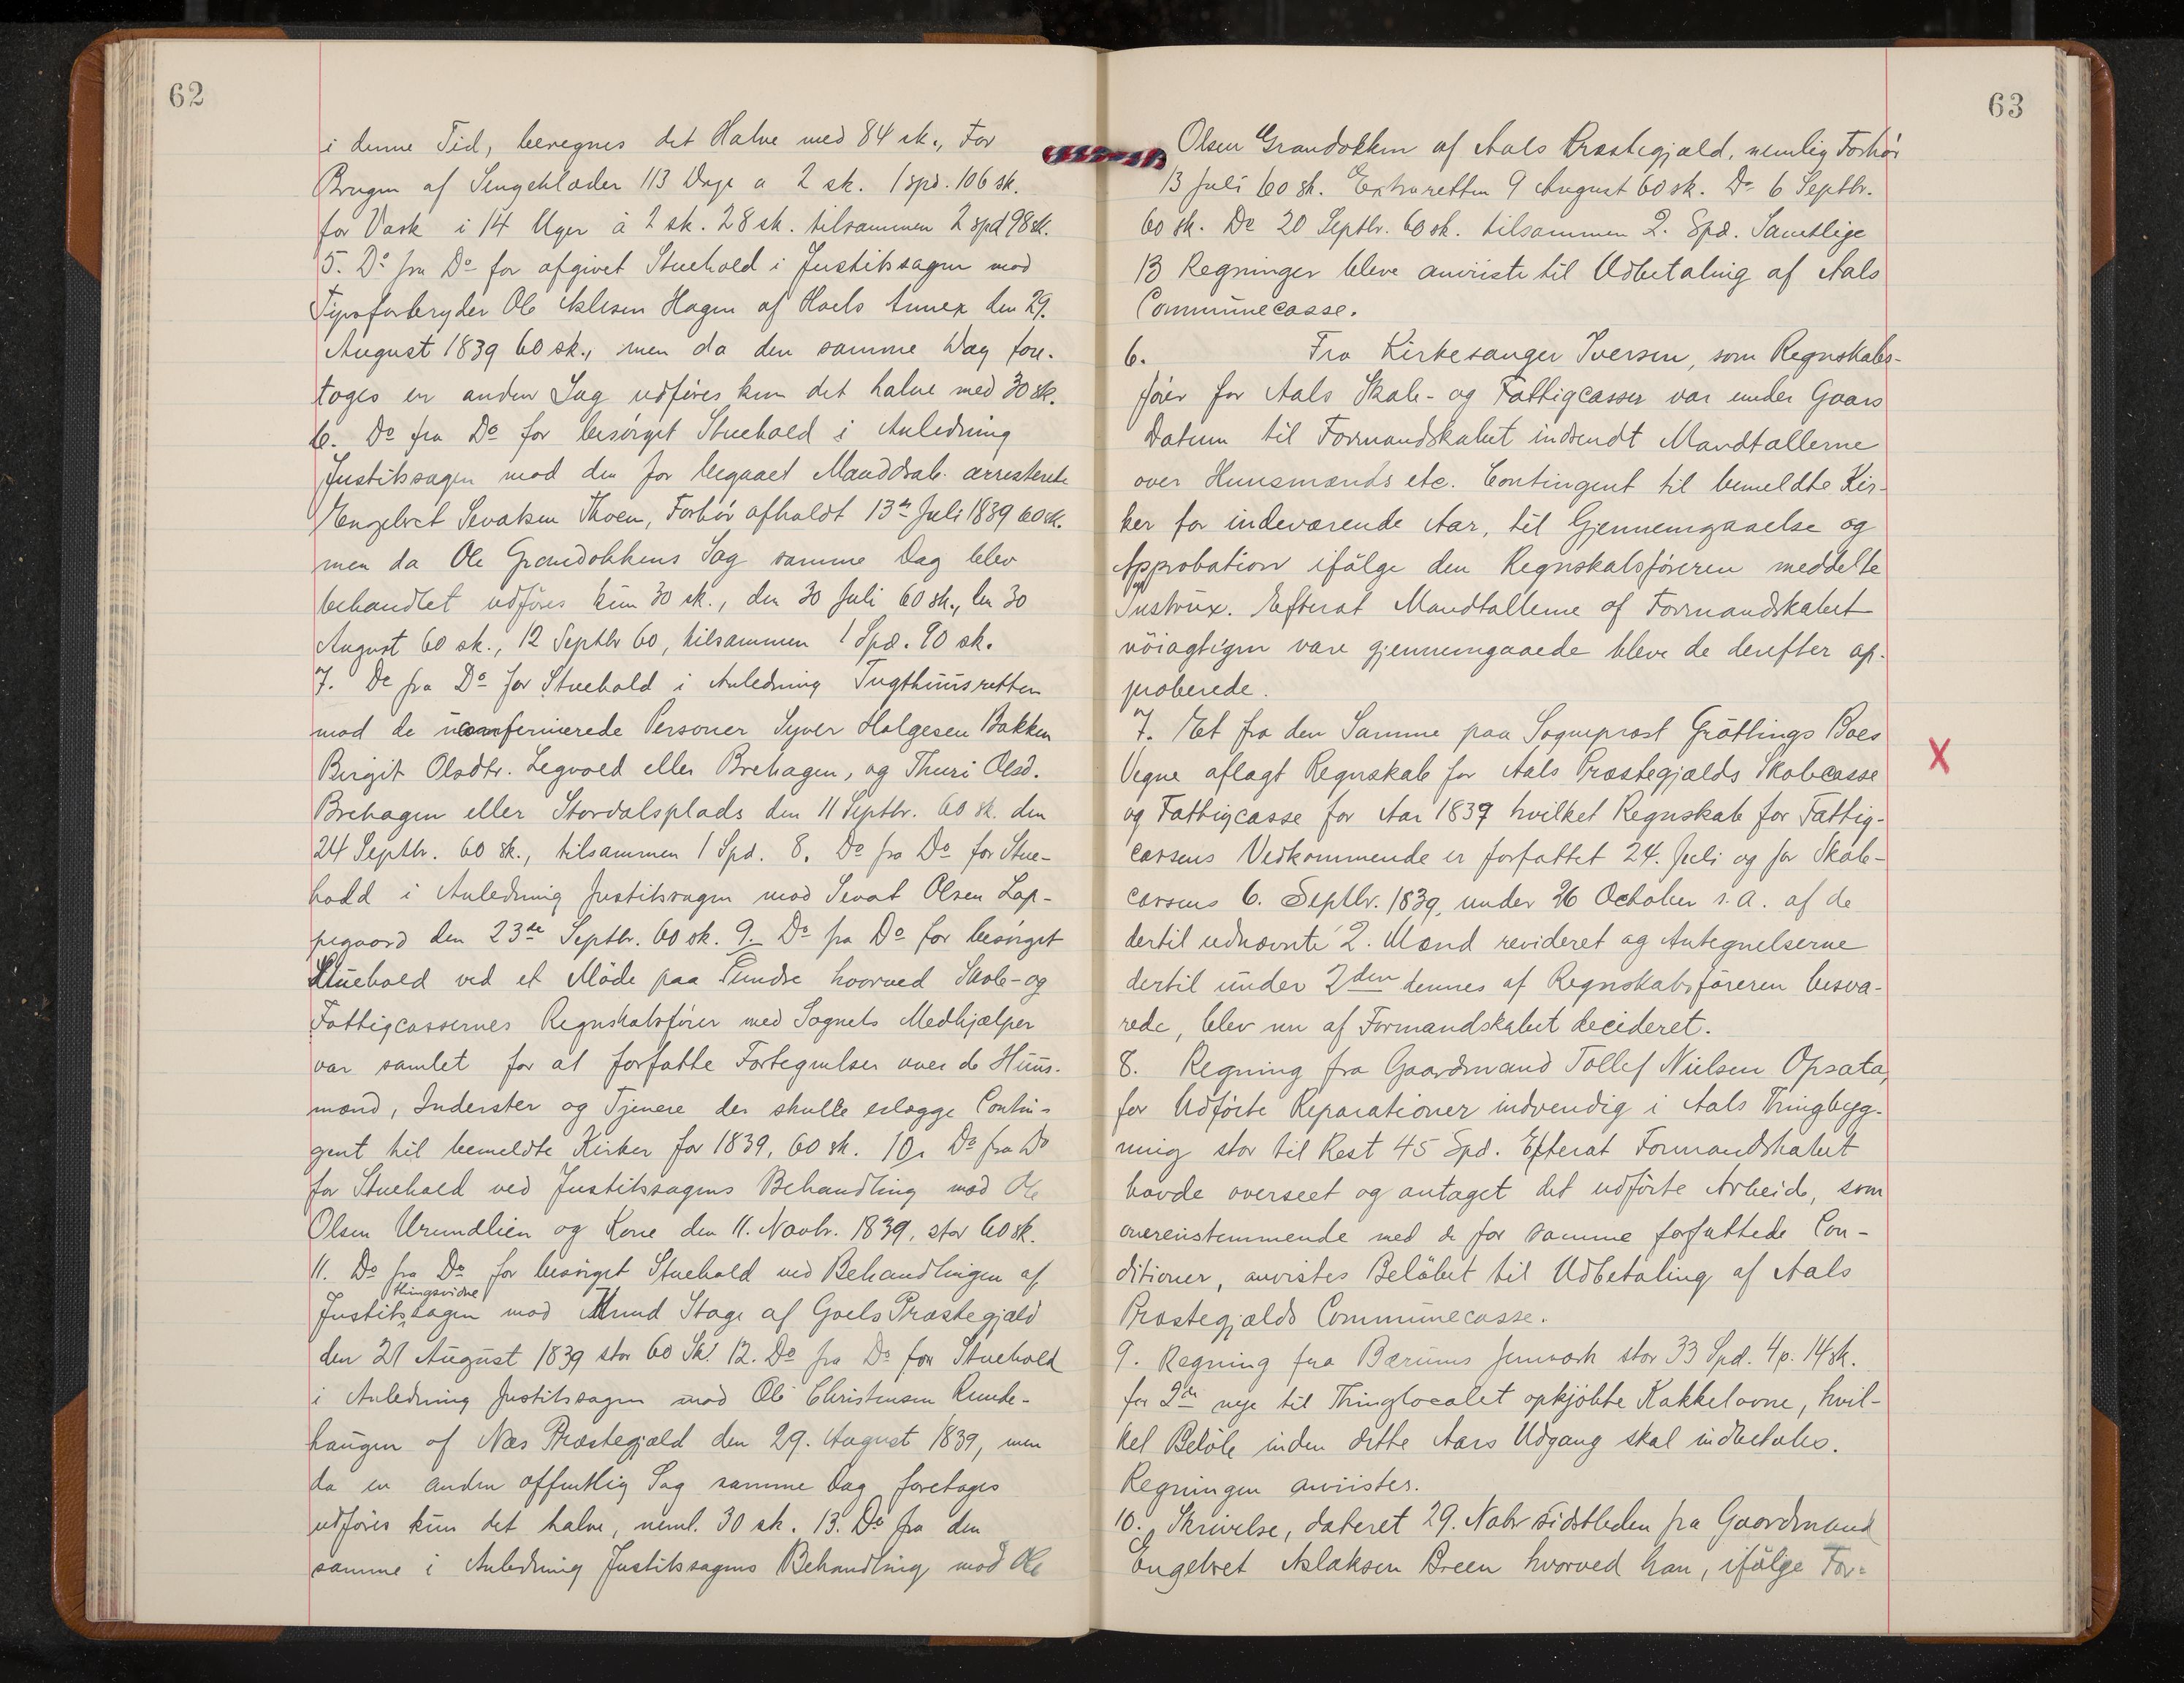 62
i denne Tid, beregnes det Halve med 84 sk., For
Brugen af Sengeklæder 113 Dage a 2 sk. 1 spd. 106 sk.
for Vask i 14 Uger à 2 sk. 28 sk. tilsammen 2 spd 98 sk.
5. Do fra Do for afgivet Stuehold i Justitssagen mod
Tyvsforbryder Ole Aslesen Hagen af Hoels Annex den 29.
August 1839 60 sk., men da den samme Dag fore-
toges en anden Sag udføres kun det halve med 30 sk.
6. Do fra Do for besörget Stuehold i Anledning
Justitssagen mod den for begaaet Manddrab arresterede
Engebret Sevatsen Thoen, Forhör afholdt 13de Juli 1839 60 sk.
men da Ole Grandokkens Sag samme Dag blev
behandlet udföres kun 30 sk., den 30 Juli 60 sk., den 30
August 60 sk., 12 Septbr 60, tilsammen 1 Spd. 90 sk.
7. Do fra Do for Stuehold i Anledning Tugthuusretten
mod de uconfermerede Personer Syver Holgesen Bakken
Birgit Olsdtr. Legvold eller Brehagen, og Thuri Olsd.
Brehagen eller Stordalsplads den 11 Septbr. 60 sk. den
24 Septbr. 60 sk., tilsammen 1 Spd. 8. Do fra Do for Stue-
hold i Anledning Justitssagen mod Sevat Olsen Lap-
pegaard den 23de Septbr. 60 sk. 9. Do fra Do for besörget
Stuehold ved et Möde paa Sundre hvorved Skole- og
Fattigcassernes Regnskabsfører med Sognets Medhjælper
var samlet for at forfatte Fortegnelser over de Huus-
mænd, Inderster og Tjenere der skulle erlægge Contin-
gent til bemeldte Kirker for 1839, 60 sk. 10. Do fra Do
for Stuehold ved Justitssagens Behandling mod Ole
Olsen Urundlien og Kone den 11. Novbr. 1839, stor 60 sk.
11. Do fra Do for besörget Stuehold ved Behandlingen af
thingsvidne
Justitssagen mod Knud Stage af Goels Præstegjæld
den 21 August 1839 stor 60 Sk. 12. Do fra Do for Stuehold
i Anledning Justitssagen mod Ole Christensen Runde-
haugen af Næs Præstegjæld den 29. August 1839, men
da en anden offentlig Sag samme Dag foretoges
udföres kun det halve, neml. 30 sk. 13. Do fra den
samme i Anledning Justitssagens Behandling mod Ole
63
Olsen Grandokken af Aals Præstegjæld, nemlig Forhör
13 Juli 60 sk. Extraretten 9 August 60 sk. Do 6 Septbr.
60 sk. Do 20 Septbr. 60 sk. tilsammen 2. Spd. Samtlige
13 Regninger bleve anviiste til Udbetaling af Aals
Communecasse.
6. Fra Kirkesanger Iversen, som Regnskabs-
fører for Aals Skole- og Fattigcasser var under Gaars
Datum til Formandskabet indsendt Mandtallerne
over Huusmænds etc. Contingent til bemeldte Kir-
ker for indeværende Aar, til Gjennemgaaelse og
Approbation ifölge den Regnskabsföreren meddelte
Instrux. Efterat Mandtallerne af Formandskabet
nöiagtigen vare gjennemgaaede bleve de derefter ap-
proberede.
7. Et fra den Samme paa Sogneprost Gröttings Boes
Vegne aflagt Regnskab for Aals Præstegjælds Skolecasse
og Fattigcasse for Aar 1839 hvilket Regnskab for Fattig-
cassens Vedkommende er forfattet 24. Juli og for Skole-
cassens 6. Septbr. 1839, under 26 October s.a. af de
dertil udnævnte 2. Mænd revideret og Antegnelserne
dertil under 2den dennes af Regnskabsföreren besva-
rede, blev nu af Formandskabet decideret.
X
8. Regning fra Gaardmand Tollef Nielsen Opsata,
for Udförte Reparationer indvendig i Aals Thingbyg-
ning stor til Rest 45 Spd. Efterat Formandskabet
havde overseet og antaget det udförte Arbeide, som
overeenstemmende med de for samme forfattede Con-
ditioner, anvistes Belöbet til Udbetaling af Aals
Præstegjælds Communecasse.
9. Regning fra Bærums Jernværk stor 33 Spd. 4 p. 14 sk.
for 2de nye til Thinglocalet opkjöbte Kakkelovne, hvil-
ket Belöb inden dette Aars Udgang skal indbetales.
Regningen anviistes.
10. Skrivelse, dateret 29. Nobr sidstleden fra Gaardmand
Engebret Aslaksen Breen hvorved han, ifölge For-